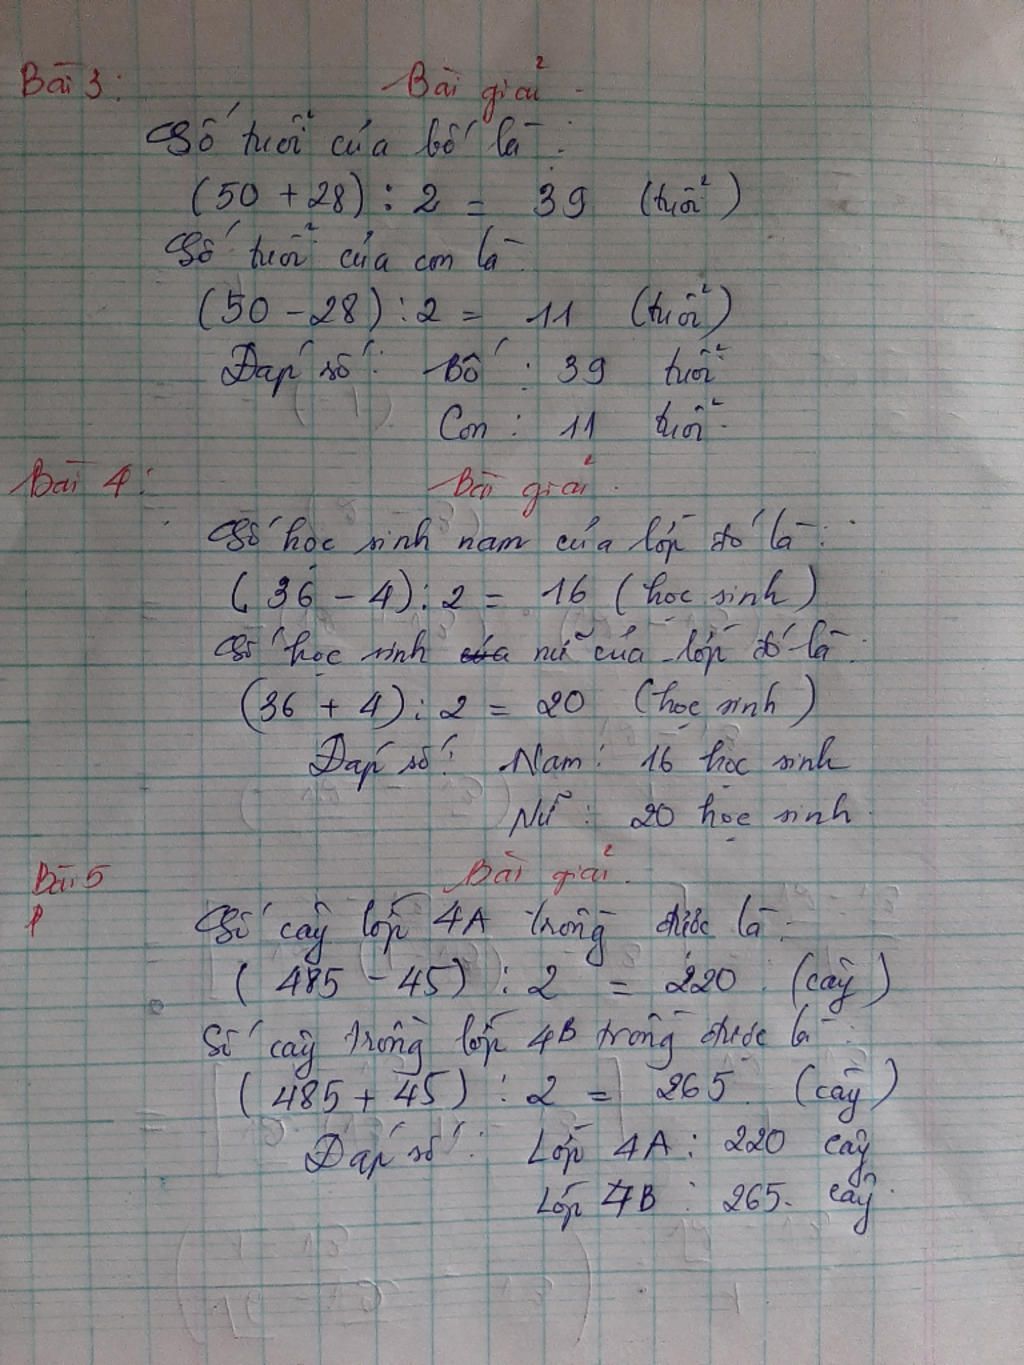 Bài 3: Bài giải
Số tuổi của bố là:
(50 + 28) : 2 = 39 (tuổi)
Số tuổi của con là
(50 - 28) : 2 = 11 (tuổi)
Đáp số: Bố : 39 tuổi
Con : 11 tuổi
Bài 4: Bài giải
Số học sinh nam của lớp đó là:
(36 - 4) : 2 = 16 (học sinh)
Số học sinh nữ của lớp đó là:
(36 + 4) : 2 = 20 (học sinh)
Đáp số: Nam: 16 học sinh
Nữ : 20 học sinh.
Bài 5 Bài giải.
Số cây lớp 4A trồng được là:
(485 - 45) : 2 = 220 (cây)
Số cây trồng lớp 4B trồng được là:
(485 + 45) : 2 = 265 (cây)
Đáp số: Lớp 4A : 220 cây
Lớp 4B : 265 cây.